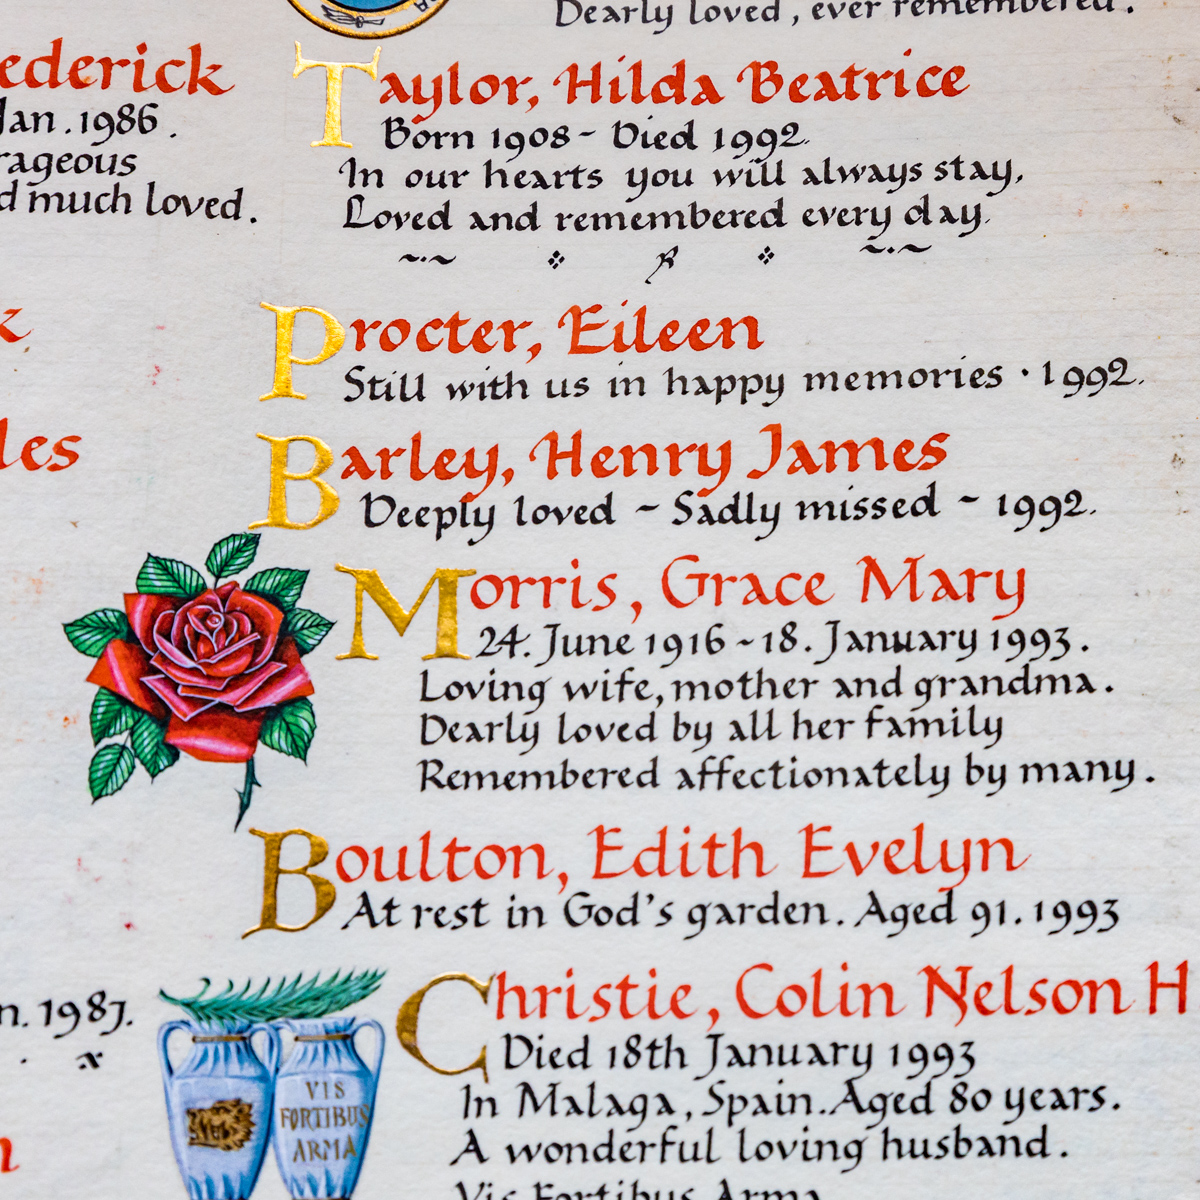 Dearly loved, ever remembered.
ederick
Jan. 1986.
rageous
d much loved.
Taylor, Hilda Beatrice
Born 1908 - Died 1992.
In our hearts you will always stay,
Loved and remembered every day.
Procter, Eileen
Still with us in happy memories · 1992.
les
Barley, Henry James
Deeply loved ~ Sadly missed ~ 1992.
Morris, Grace Mary
24. June 1916 ~ 18. January 1993.
Loving wife, mother and grandma.
Dearly loved by all her family
Remembered affectionately by many.
Boulton, Edith Evelyn
At rest in God's garden. Aged 91. 1993
n. 1987.
Christie, Colin Nelson H
Died 18th January 1993
In Malaga, Spain. Aged 80 years.
A wonderful loving husband.
Vis Fortibus Arma
VIS
FORTIBUS
ARMA